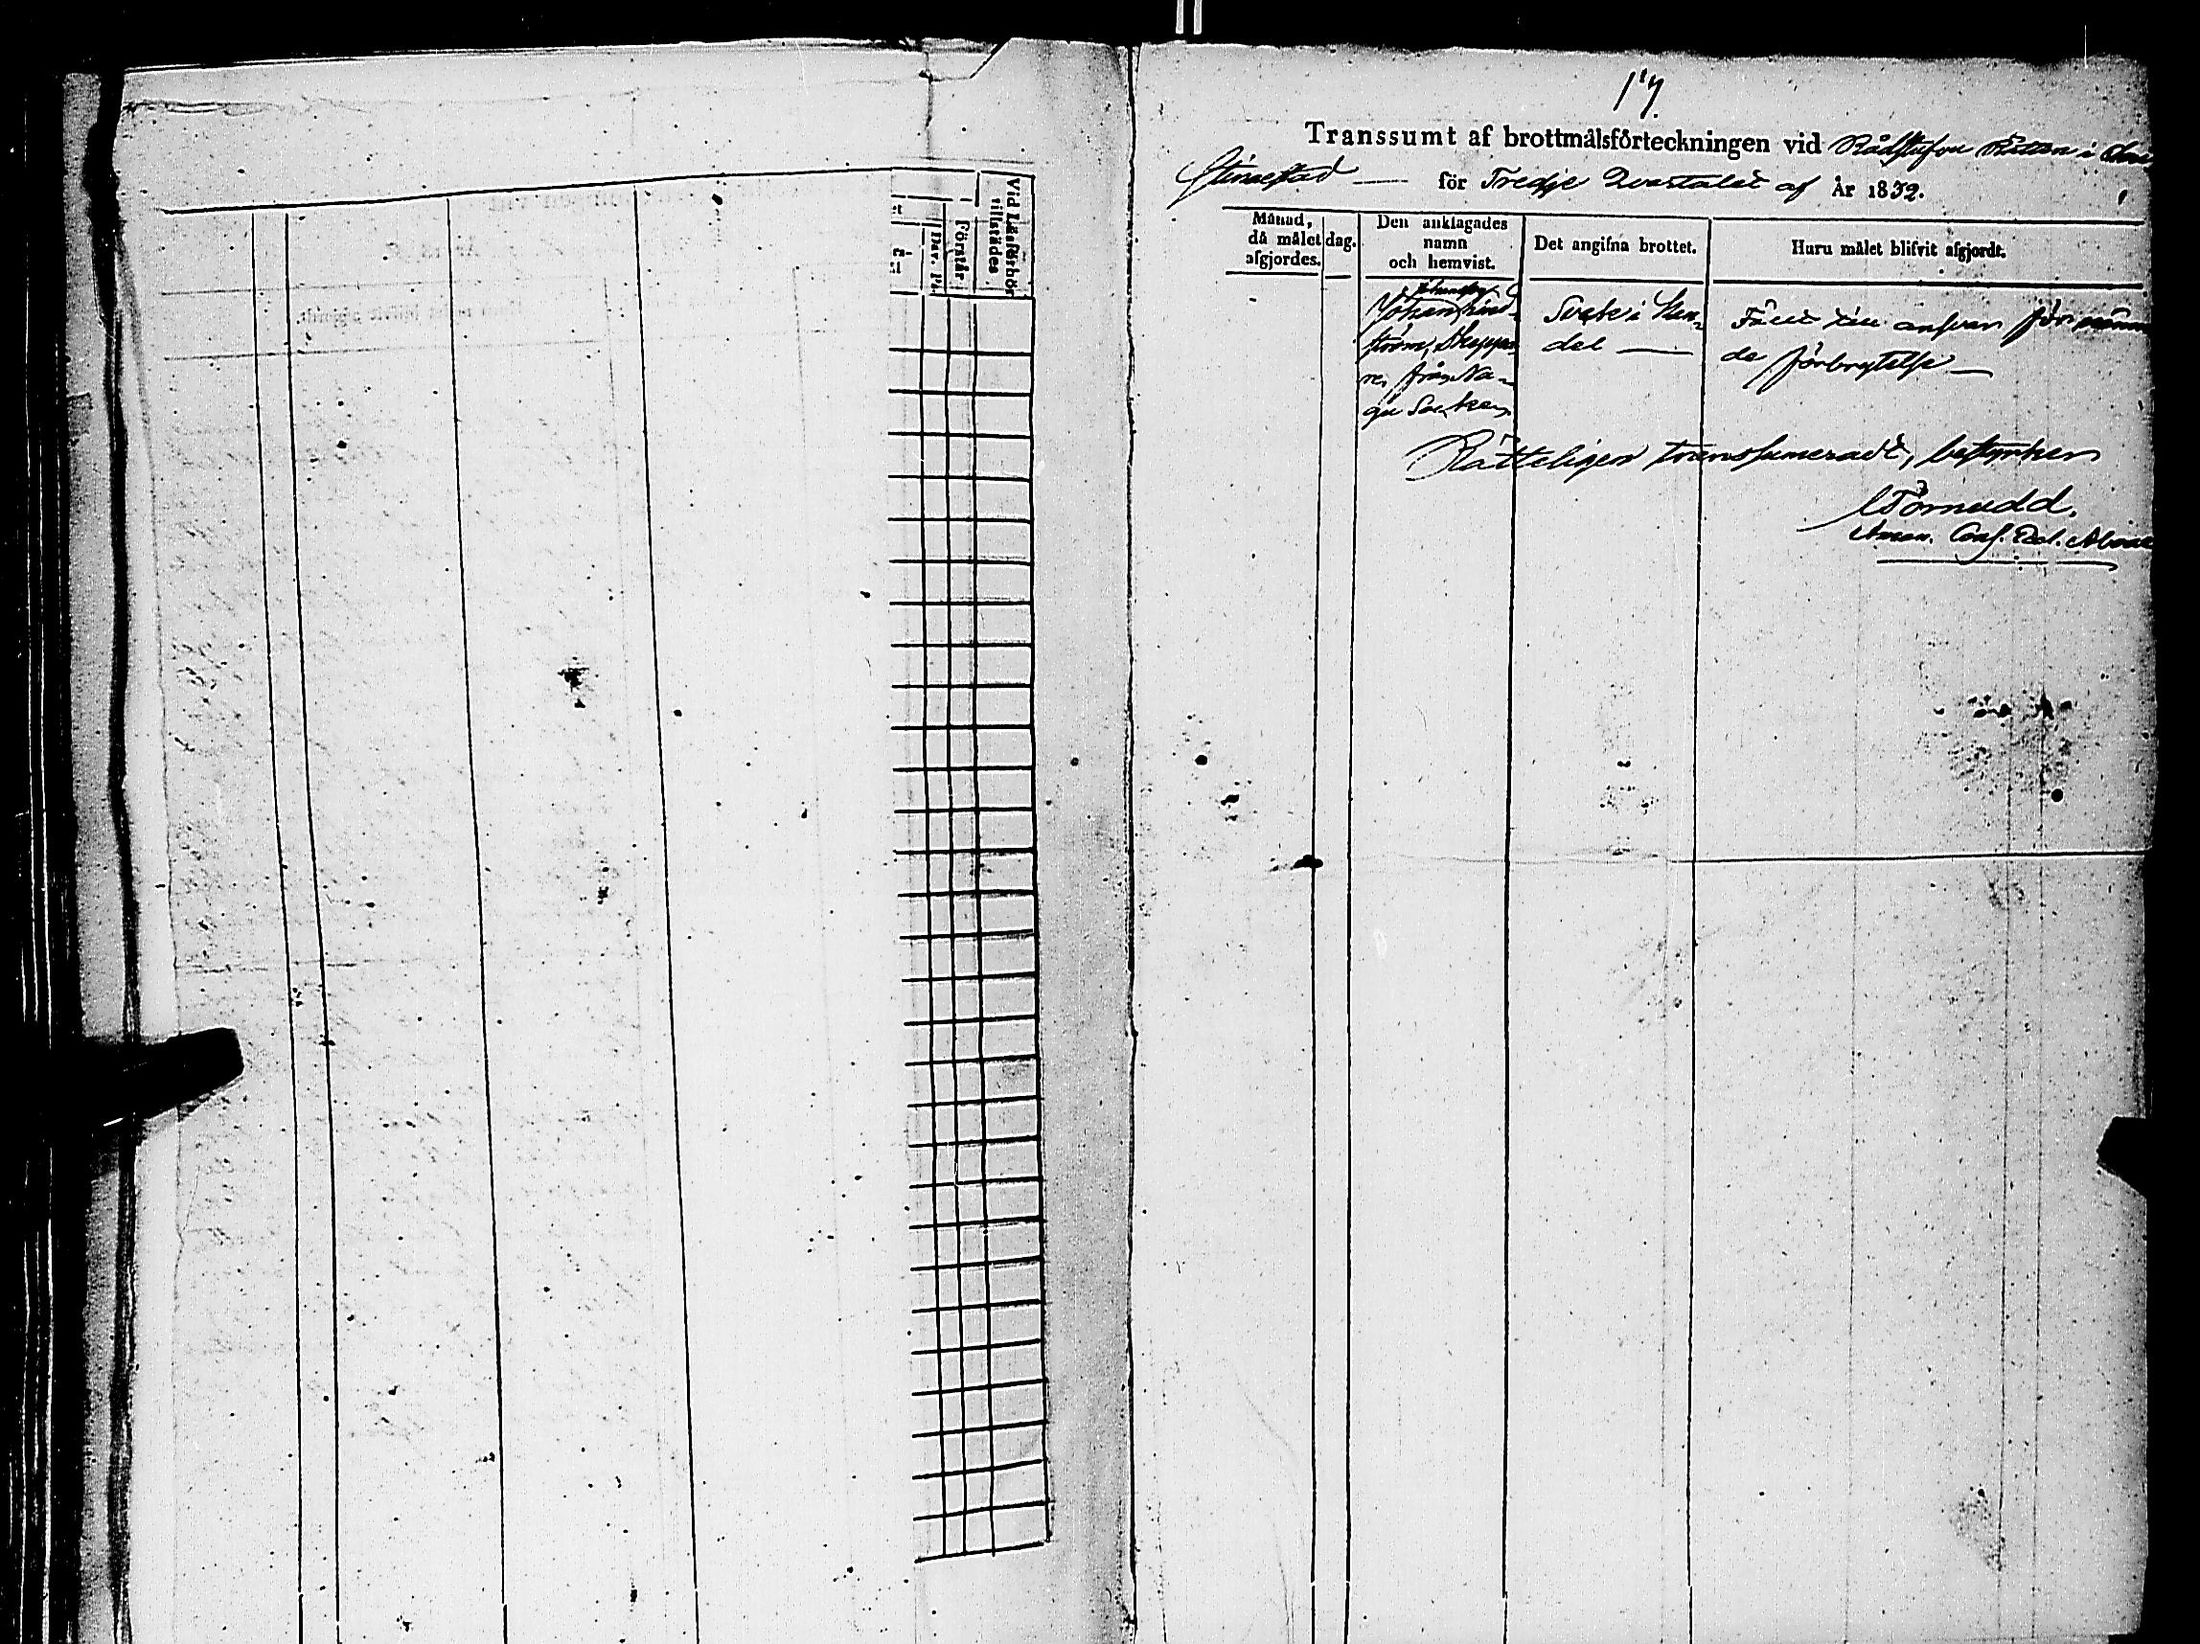 Vid Läsförhör
tillstädes.
Förstår
17.
Transsumt af brottmålsförteckningen vid Rådstufvu Rätten i Chri
stinestad — för Tredje Qvartalet af År 1832.
Månad, då målet afgjordes.
dag.
Den anklagades namn och hemvist.
Det angifna brottet.
Huru målet blifvit afgjordt.
Johansson
Johan Lind-
ström, Skeppa-
re, från Na-
gu Socken
Svek i Han-
del —
Fälld till ansvar för nämn
de förbrytelse —
Rätteligen transsumeradt, bestyrker
Törnudd.
Aman. Cons. Eccl. Aboae